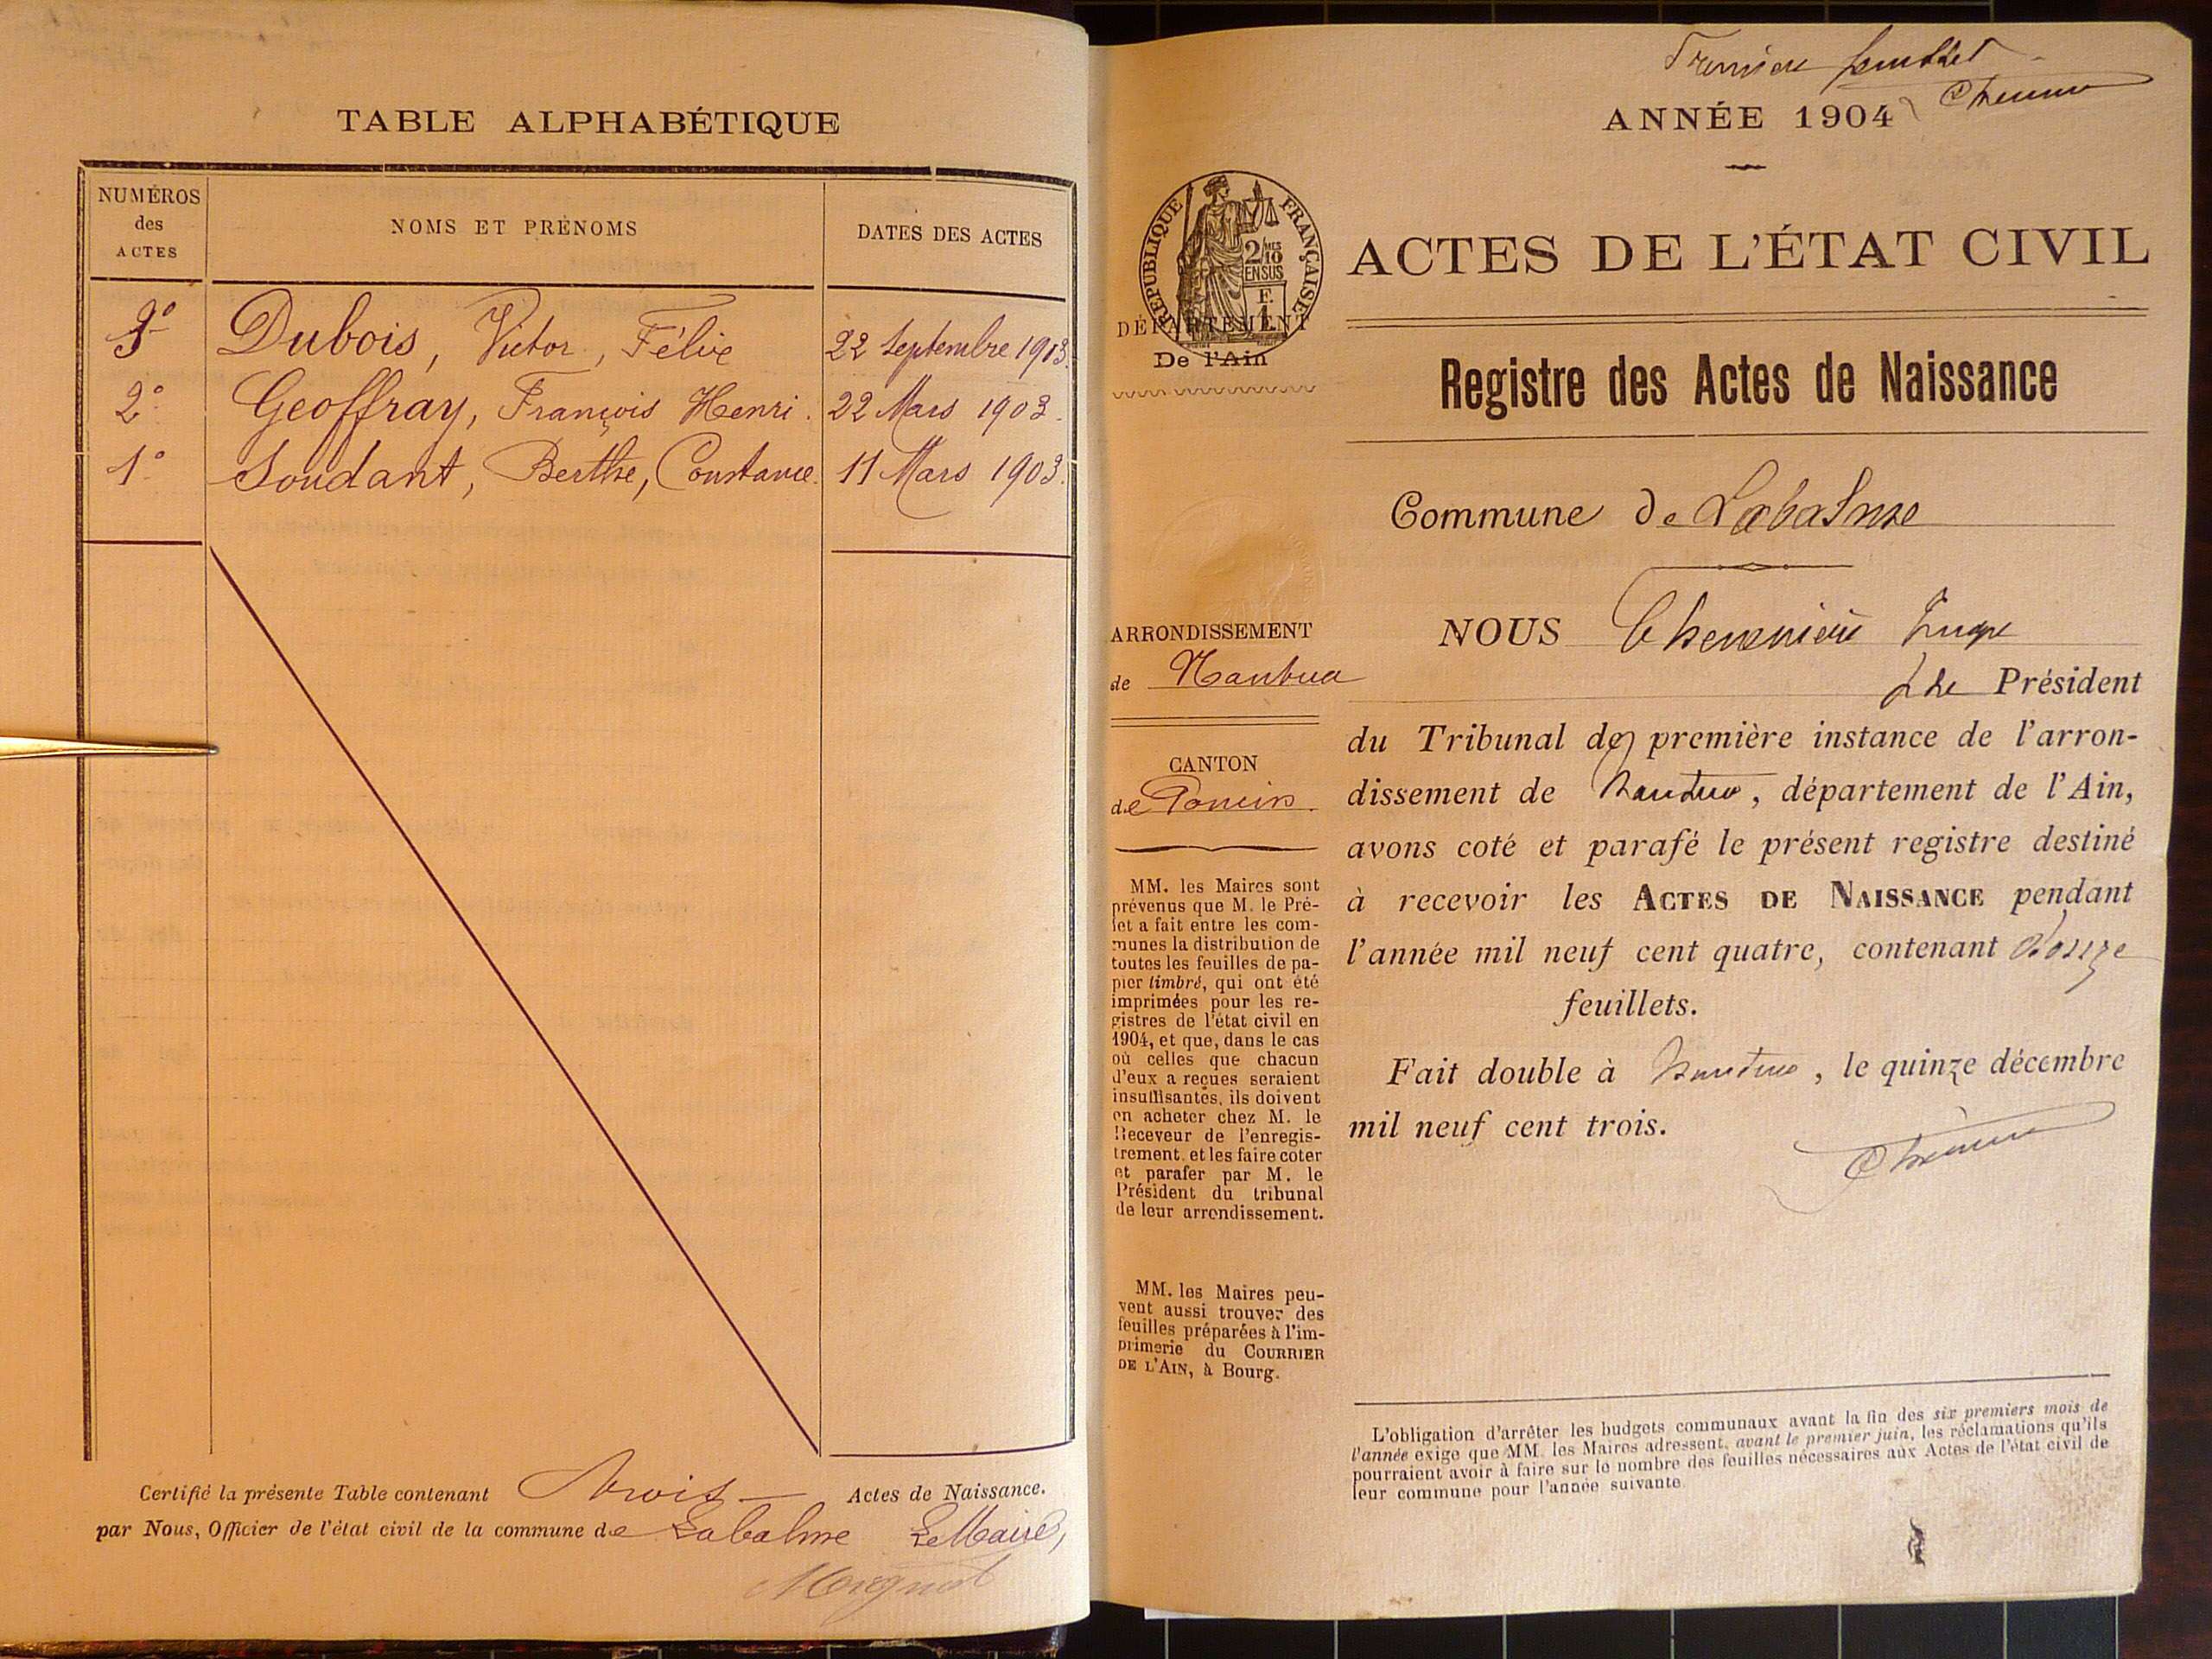 TABLE ALPHABÉTIQUE
NUMÉROS
des
ACTES
NOMS ET PRÉNOMS
DATES DES ACTES
3° Dubois, Victor, Félix 22 Septembre 1903.
2° Geoffray, François Henri. 22 Mars 1903.
1° Soudant, Berthe, Constance. 11 Mars 1903.
Certifié la présente Table contenant trois — Actes de Naissance.
par Nous, Officier de l'état civil de la commune de Labalme Le Maire,
Première feuillet
ANNÉE 1904
RÉPUBLIQUE FRANÇAISE
2/10
EN SUS
F.
1
DÉPARTEMENT
De l'Ain
ACTES DE L'ÉTAT CIVIL
Registre des Actes de Naissance
Commune de Labalme
ARRONDISSEMENT
de Nantua
CANTON
de Poncin
MM. les Maires sont
prévenus que M. le Pré-
fet a fait entre les com-
munes la distribution de
toutes les feuilles de pa-
pier timbré, qui ont été
imprimées pour les re-
gistres de l'état civil en
1904, et que, dans le cas
où celles que chacun
d'eux a reçues seraient
insuffisantes, ils doivent
en acheter chez M. le
Receveur de l'enregis-
trement, et les faire coter
et parafer par M. le
Président du tribunal
de leur arrondissement.
MM. les Maires peu-
vent aussi trouver des
feuilles préparées à l'im-
primerie du COURRIER
DE L'AIN, à Bourg.
NOUS
Président
du Tribunal de première instance de l'arron-
dissement de Nantua, département de l'Ain,
avons coté et parafé le présent registre destiné
à recevoir les ACTES DE NAISSANCE pendant
l'année mil neuf cent quatre, contenant douze
feuillets.
Fait double à Nantua, le quinze décembre
mil neuf cent trois.
L'obligation d'arrêter les budgets communaux avant la fin des six premiers mois de
l'année exige que MM. les Maires adressent, avant le premier juin, les réclamations qu'ils
pourraient avoir à faire sur le nombre des feuilles nécessaires aux Actes de l'état civil de
leur commune pour l'année suivante.